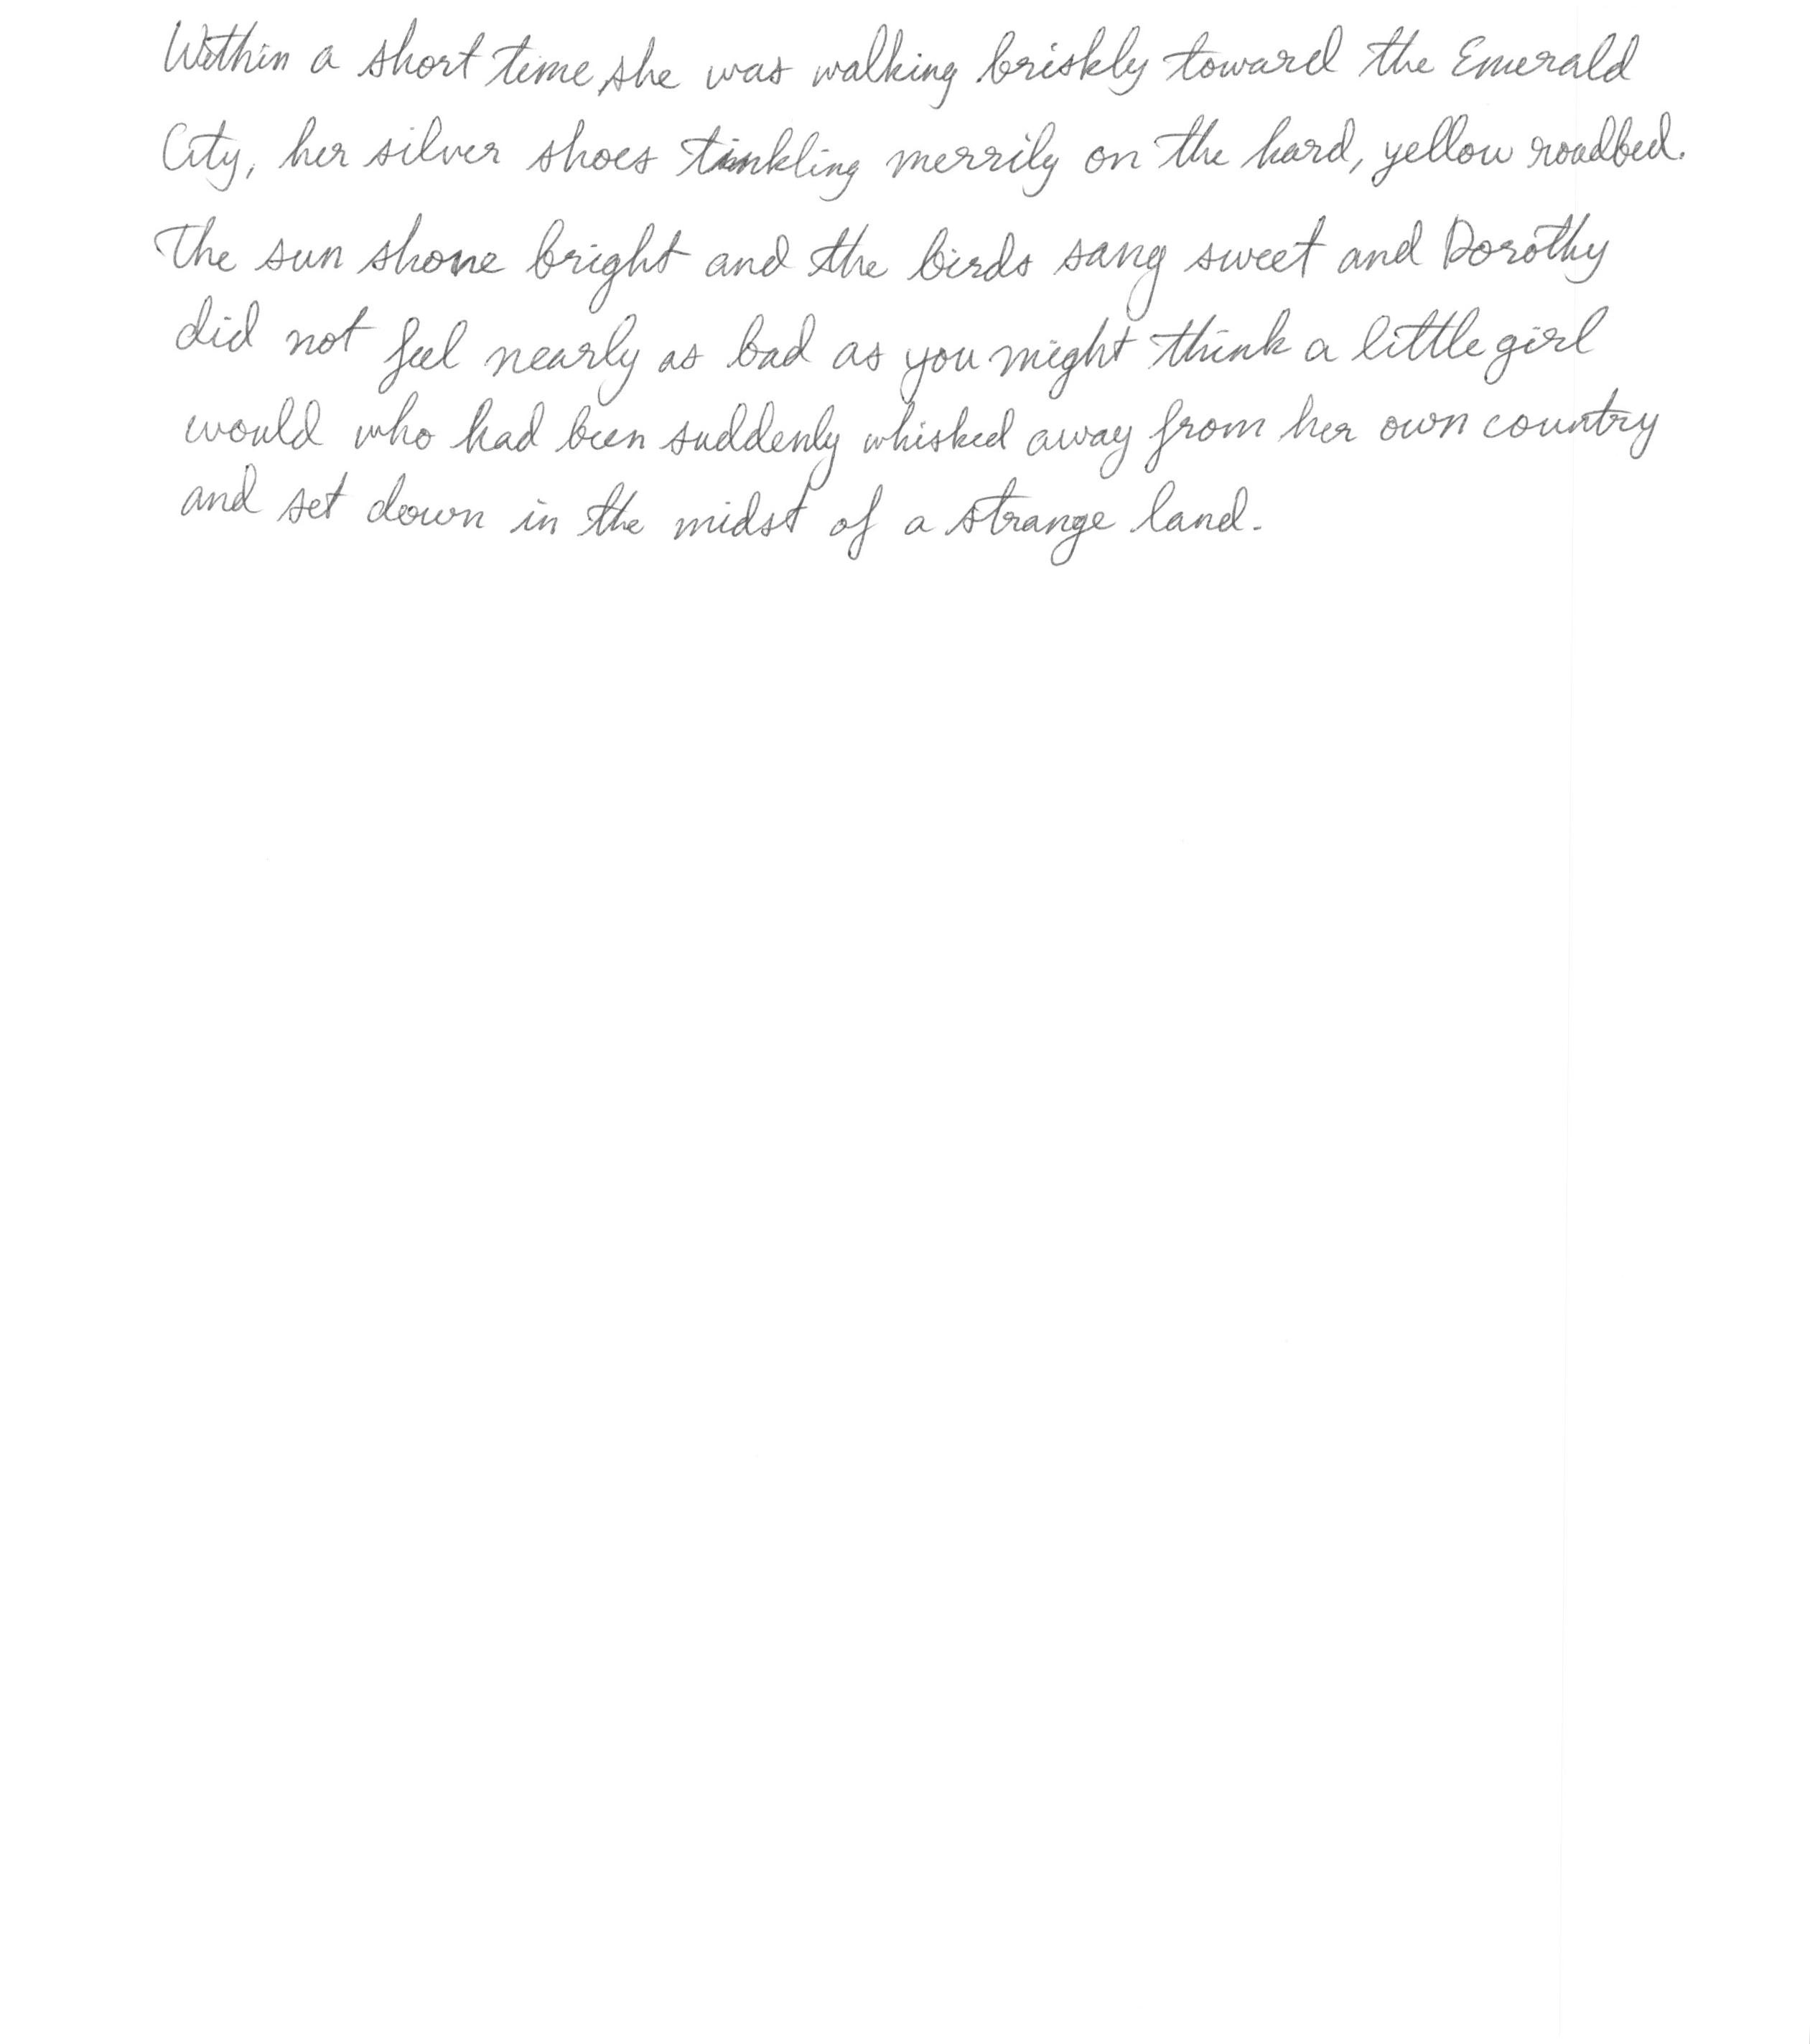 Within a short time, she was walking briskly toward the Emerald
City, her silver shoes tinkling merrily on the hard, yellow roadbed.
The sun shone bright and the birds sang sweet and Dorothy
did not feel nearly as bad as you might think a little girl
would who had been suddenly whisked away from her own country
and set down in the midst of a strange land.